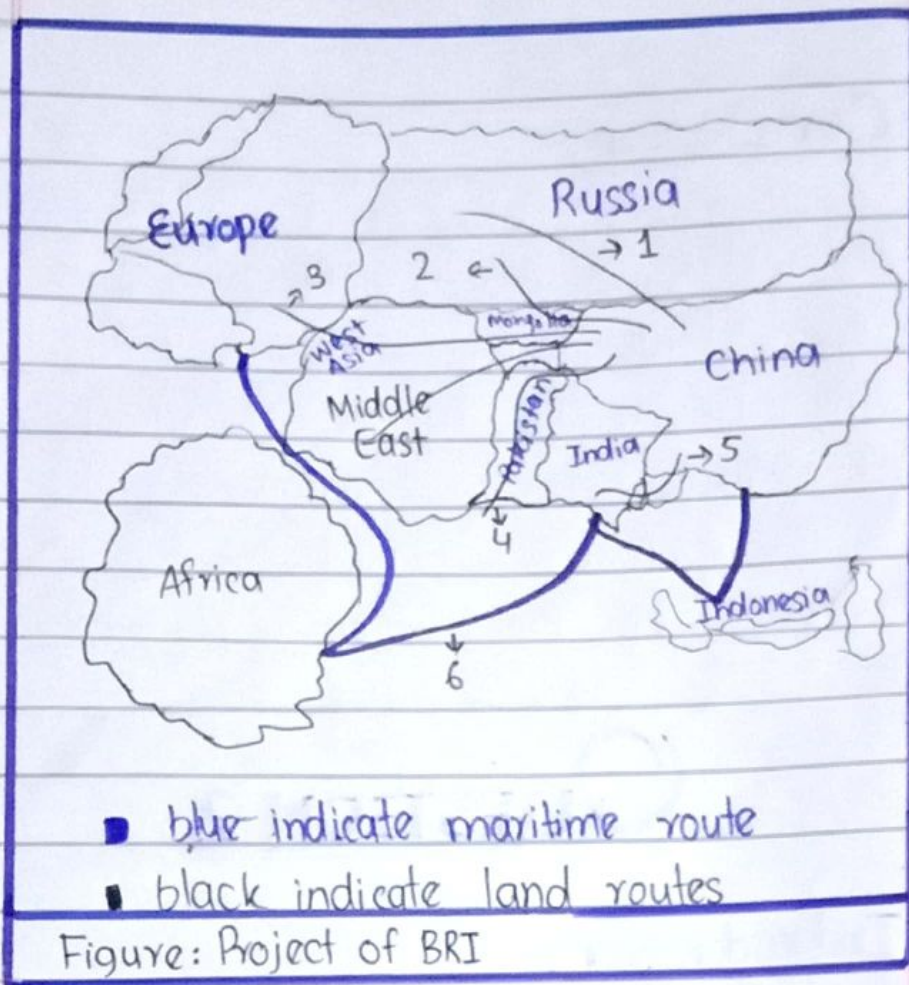 Europe
Russia
→ 1
2 ←
3
Mongolia
West
Asia
China
Middle
East
Pakistan
India
→ 5
4
Africa
Indonesia
6
blue indicate maritime route
black indicate land routes
Figure: Project of BRI